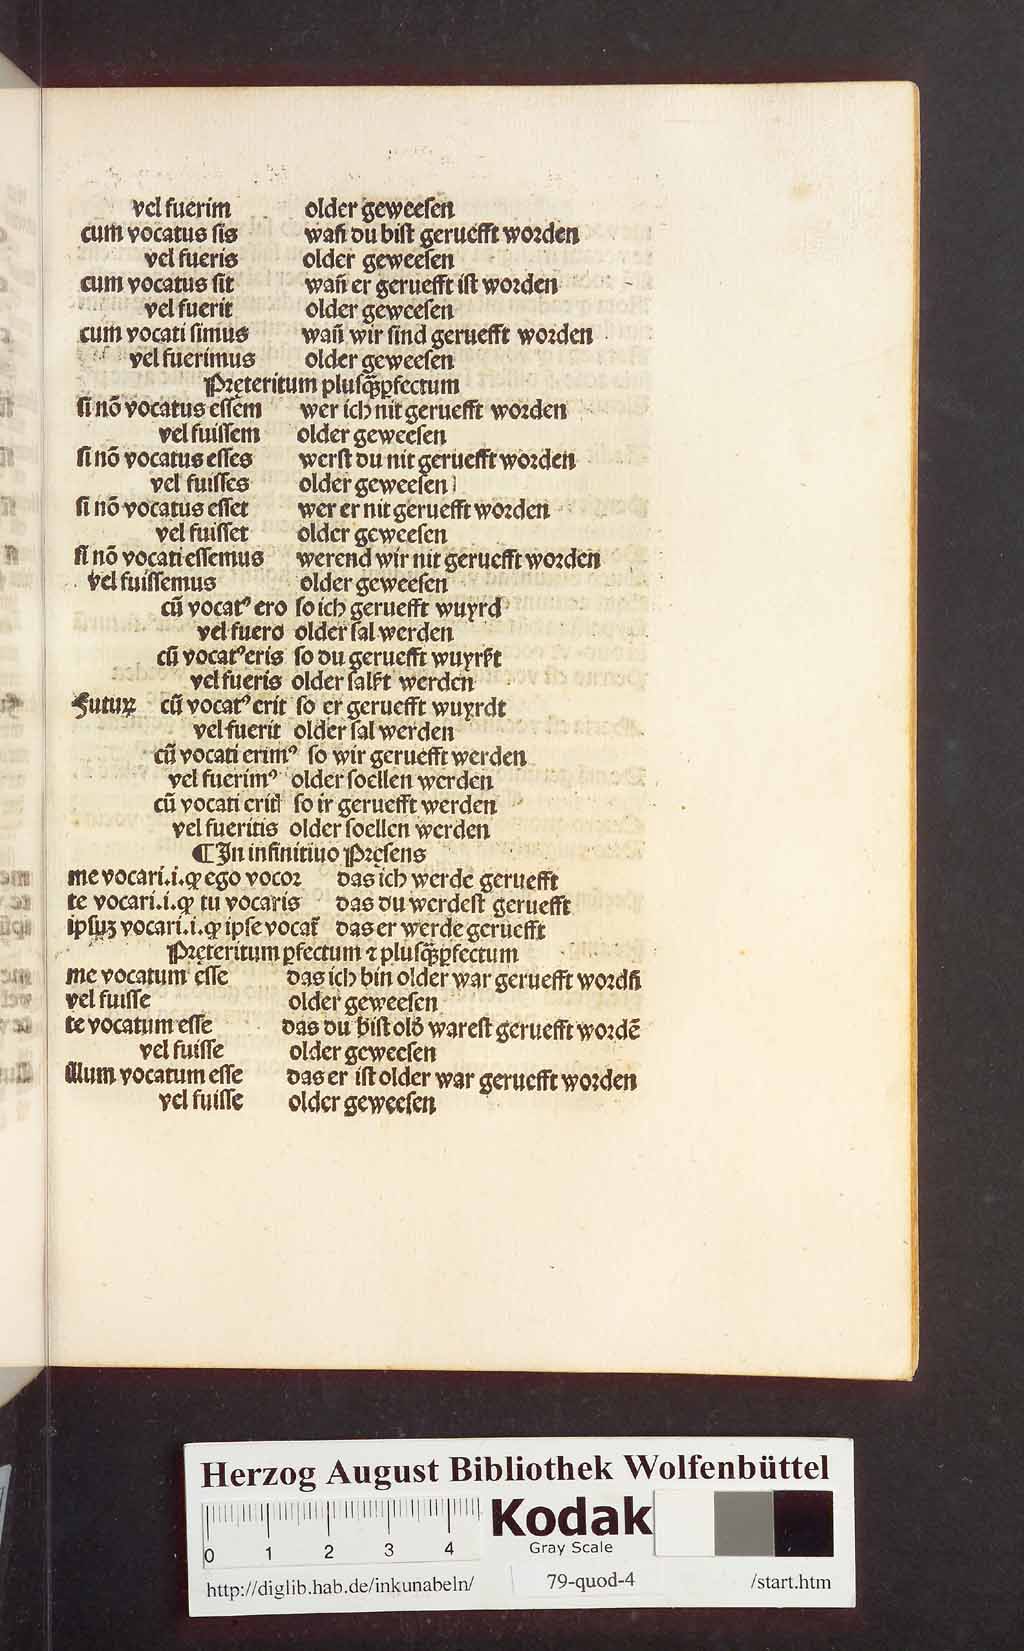 vel fuerim older geweeſen
cum vocatus ſis wañ du biſt geruefft worden
vel fueris older geweeſen
cum vocatus ſit wañ er geruefft iſt worden
vel fuerit older geweeſen
cum vocati ſimus wañ wir ſind geruefft worden
vel fuerimus older geweeſen
Pręteritum pluſq̃ꝑfectum
ſi nõ vocatus eſſem wer ich nit geruefft worden
vel fuiſſem older geweeſen
ſi nõ vocatus eſſes werſt du nit geruefft worden
vel fuiſſes older geweeſen
ſi nõ vocatus eſſet wer er nit geruefft worden
vel fuiſſet older geweeſen
ſi nõ vocati eſſemus werend wir nit geruefft worden
vel fuiſſemus older geweeſen
cũ vocatꝰ ero ſo ich geruefft wuyrd
vel fuero older ſal werden
cũ vocatꝰ eris ſo du geruefft wuyrſt
vel fueris older ſalſt werden
Futuꝝ cũ vocatꝰ erit ſo er geruefft wuyrdt
vel fuerit older ſal werden
cũ vocati erimꝰ ſo wir geruefft werden
vel fuerimꝰ older ſoellen werden
cũ vocati ſo ir geruefft werden
vel fueritis older ſoellen werden
¶ In infinitiuo Pręſens
me vocari .i. ꝙ ego vocor das ich werde geruefft
te vocari .i. ꝙ tu vocaris das du werdeſt geruefft
ipſuꝫ vocari .i. ꝙ ipſe vocat᷑ das er werde geruefft
Pręteritum ꝑfectum ⁊ pluſq̃ꝑfectum
me vocatum eſſe das ich bin older war geruefft wordñ
vel fuiſſe older geweeſen
te vocatum eſſe das du biſt old̕ wareſt geruefft wordẽ
vel fuiſſe older geweeſen
illum vocatum eſſe das er iſt older war geruefft worden
vel fuiſſe older geweeſen
Herzog August Bibliothek Wolfenbüttel
0 1 2 3 4
Kodak
Gray Scale
http://diglib.hab.de/inkunabeln/ 79-quod-4 /start.htm